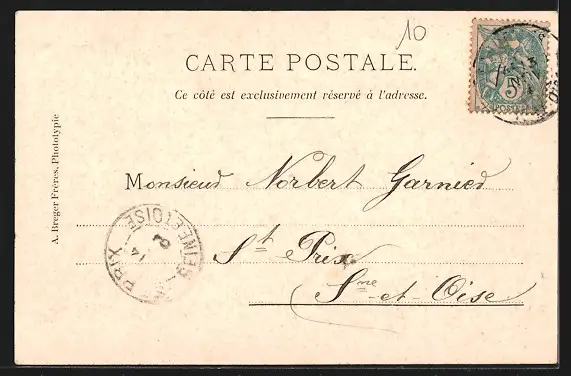 10
CARTE POSTALE.
Ce côté est exclusivement réservé à l'adresse.
5
POSTES
A. Breger Frères, Phototypie
Monsieur Norbert Garnier
St Prix
Sne-et-Oise
PRIX
SEINE ET OISE
14